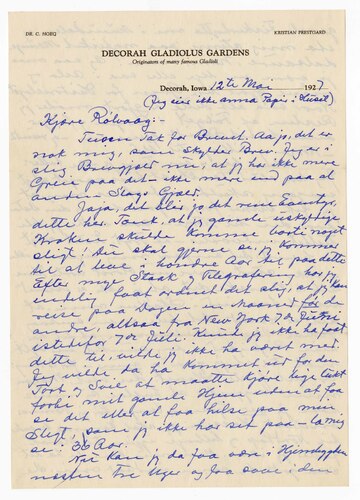 DR. C. HOEG
KRISTIAN PRESTGARD
DECORAH GLADIOLUS GARDENS
Originators of many famous Gladioli
Decorah, Iowa 12te Mai 1927
(Jeg eier ikke anna Papir i Huset)
Kjøre Rölvaag:-
Tusen Tak for Brevet. Aa jo, det er
nok mig, som skylder Brev. Jeg er i
slig Brevgjæld nu, at jeg har ikke mere
Greie paa det - ikke mere end paa al
anden Slags Gjæld.
Jaja, det blir jo det rene Eventyr,
dette her. Tænk, at jeg gamle uskyldige
Kroken skulde komme borti noget
sligt! Her skal gjerne se, jeg kommer
til at leve i hundre Aar her paa dette
Efter meget Staak og Telegrafering har jeg
endelig faat ordnet det slig, at jeg kan
reise paa Dagen en Maaned før de
andre, altsaa fra New York 7de Juni
istedefor 7de Juli. Kunde jeg ikke ha faat
dette til, vilde jeg ikke ha været med.
Jeg vilde da ha kommet ud for den
Tort og Svie at maatte kjöre lige tæt
forbi mit gamle Hjem uden at faa
se det eller at faa hilse paa min
Slegt, som jeg ikke har set paa - la mig
se: 36 Aar.
Nu kan jeg da faa være i Hjembygden
næsten tre Uger og faa sove i den